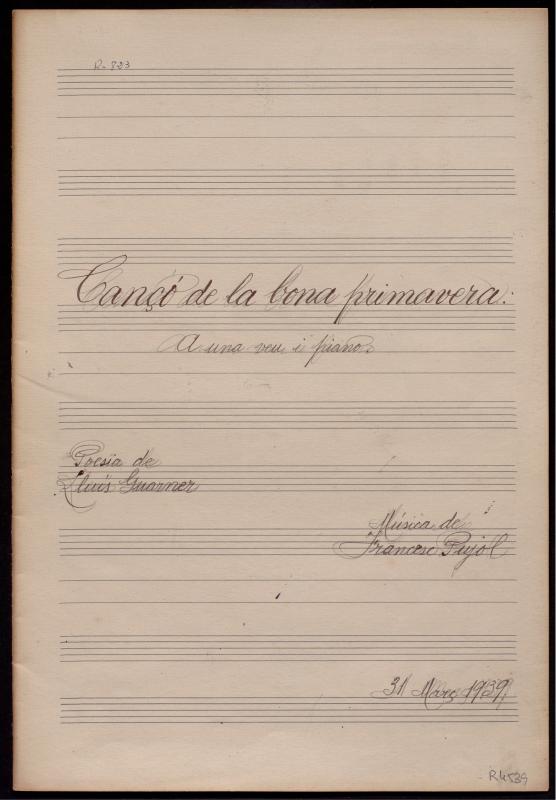 R-823
Cançó de la bona primavera.
A una veu i piano.
Poesia de
Lluís Guarner
Música de
Francesc Pujol
31 Març 1939
R4539